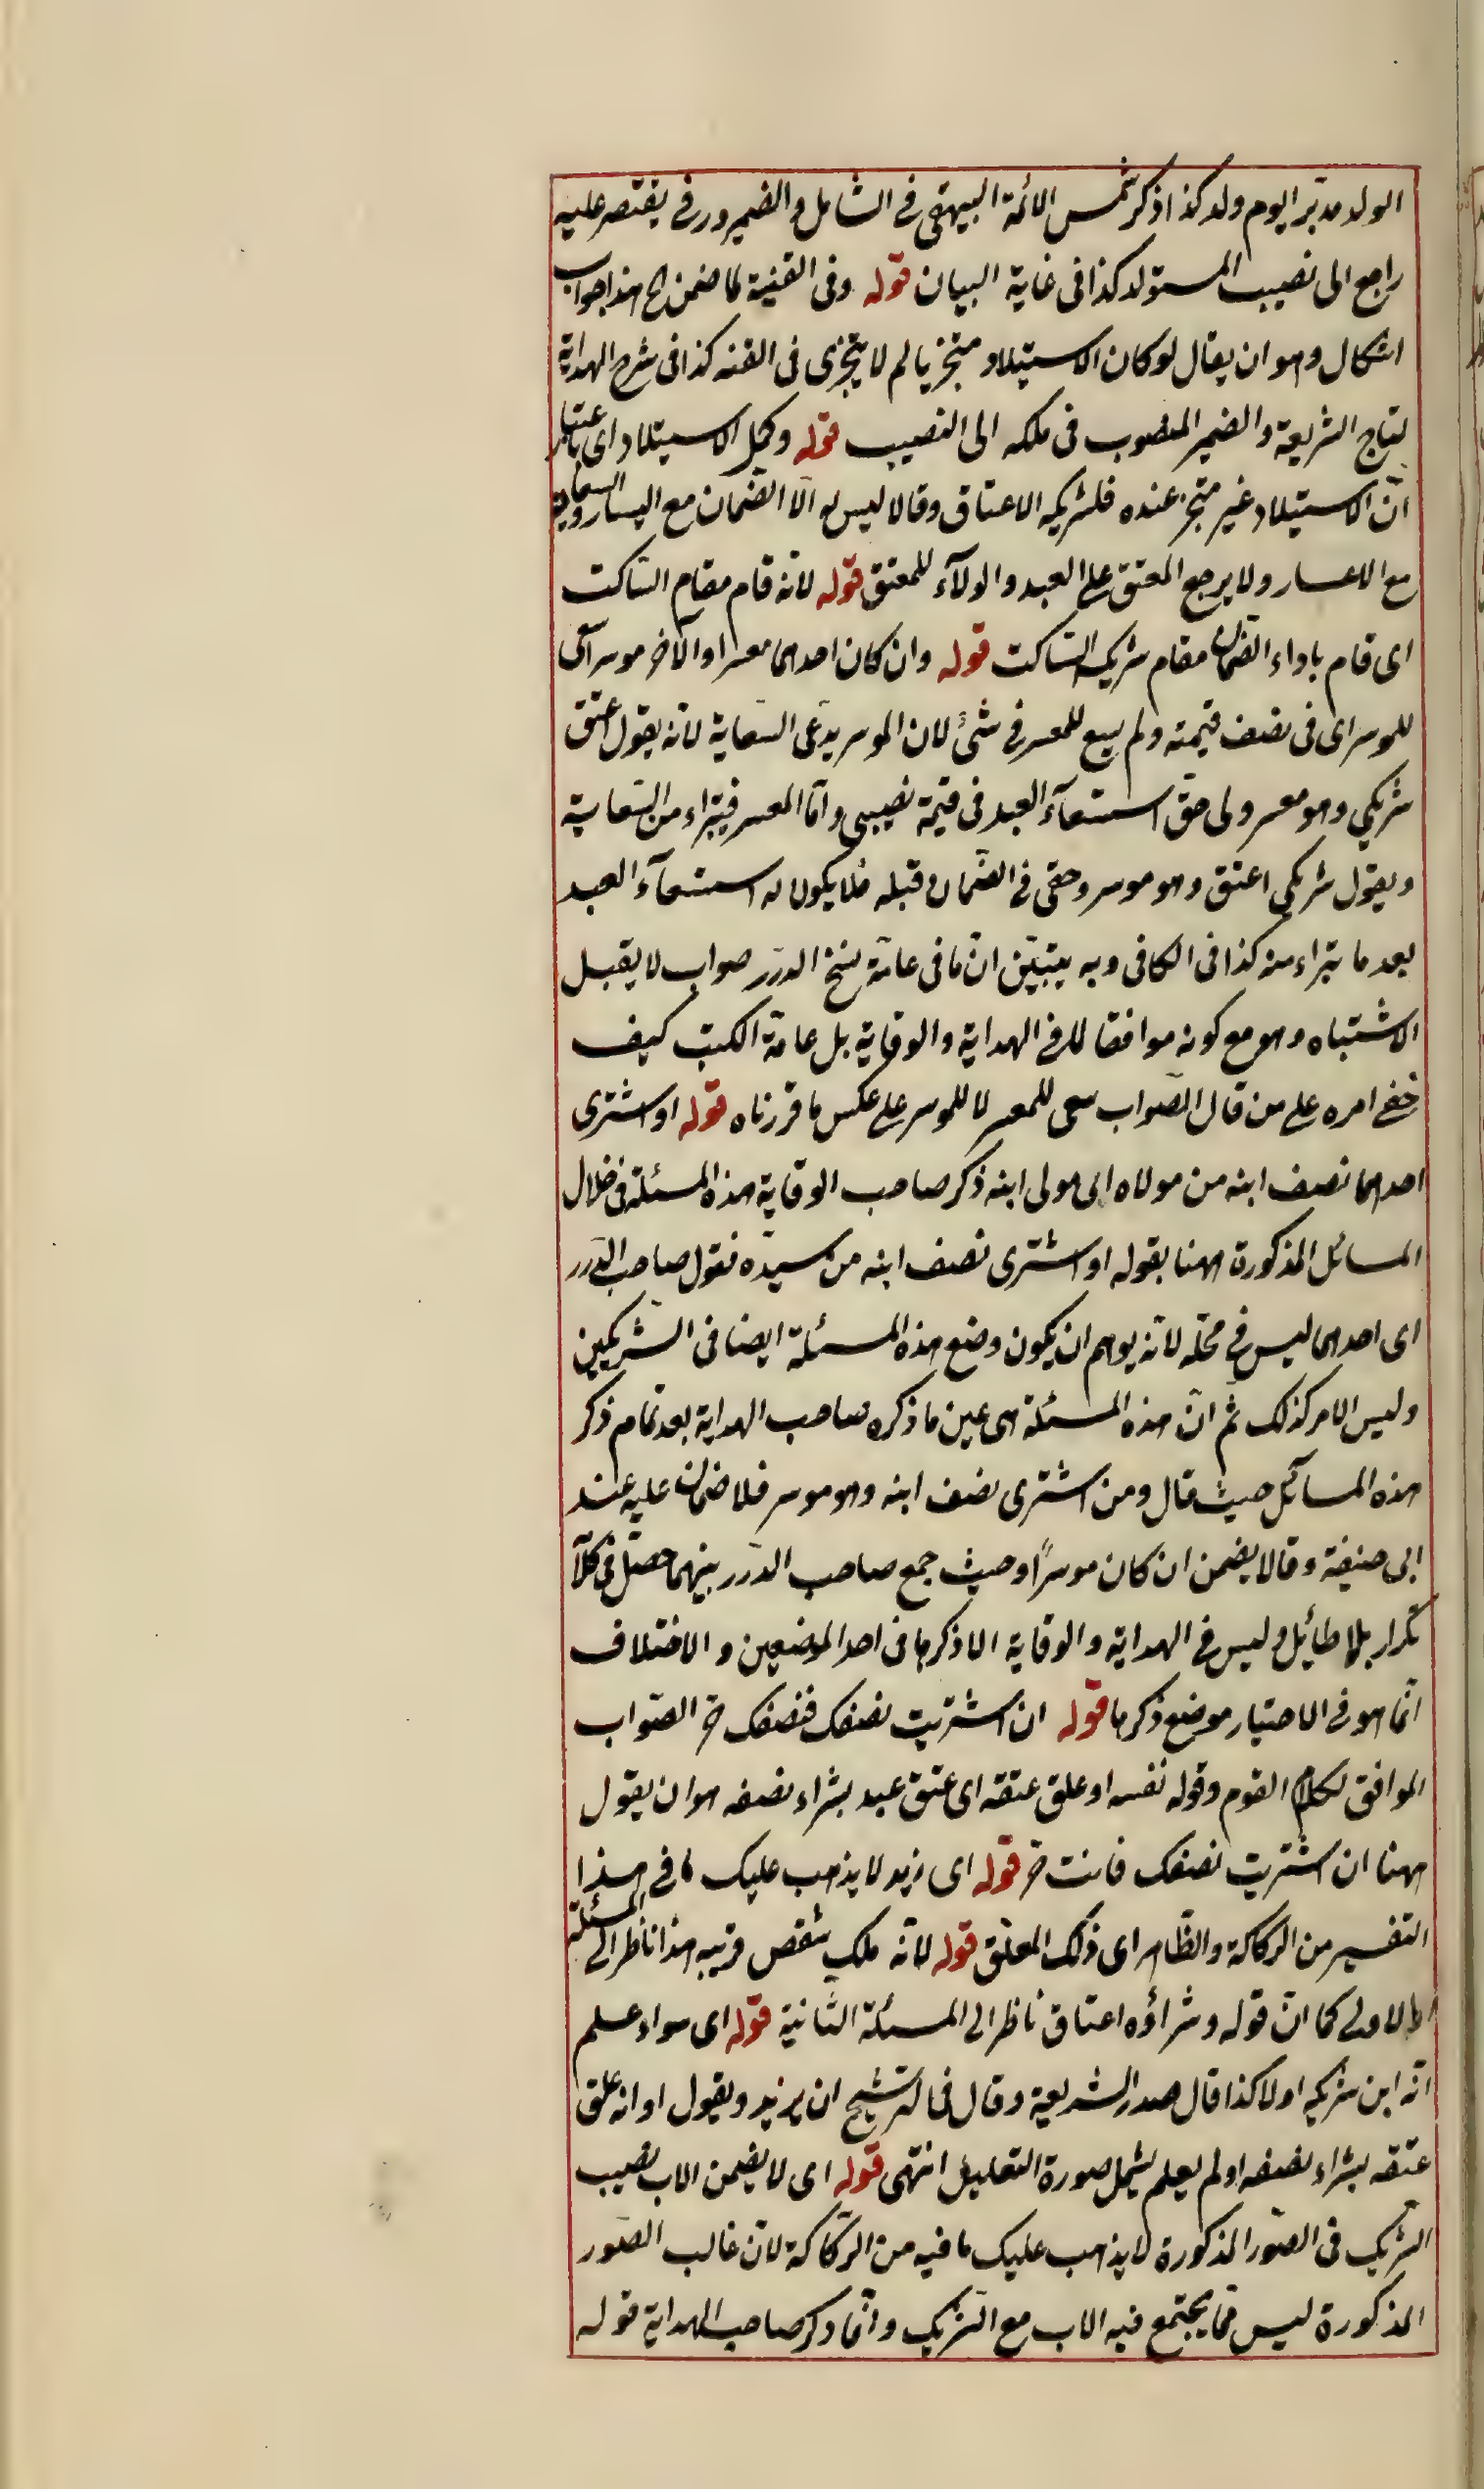 الولد مدبر اليوم ولد كذا ذكر شمس الائمة البيهقى فى الشامل والضمير ورفى يقتصر عليه
راجع الى نصيب المستولد كذا فى غاية البيان قوله وفى القنية لما ضمن الخ هذا جواب
اشكال وهو ان يقال لو كان الاستيلاد متجزيا لم لا يتجزى فى القنه كذا فى شرح الهداية
لتاج الشريعة والضمير المنصوب فى ملكه الى النصيب قوله وكمل الاستيلاد اى باعتبار
انّ الاستيلاد غير متجز عنده فلشريكه الاعتاق وقالا ليس له الّا الضمان مع اليسار والسعاية
مع الاعسار ولا يرجع المعتق على العبد والولآء للمعتق قوله لانّه قام مقام الساكت
اى قام باداء الضمان مقام شريكه الساكت قوله وان كان احدهما معسرا والآخر موسرا سعى
للموسر اى فى نصف قيمته ولم يسع للمعسر فى شئ لان الموسر يدعى السعاية لانّه يقول اعتق
شريكي وهو معسر ولى حقّ استسعآء العبد فى قيمة نصيبى وامّا المعسر فيتبراء من السّعاية
ويقول شريكى اعتق وهو موسر وحقى فى الضّمان قبله فلا يكون له استسعآء العبد
بعد ما تبراء منه كذا فى الكافى وبه يتبيّن انّ ما فى عامّة نسخ الدرر صواب لا يقبل
الاشتباه وهو مع كونه موافقا للفى الهداية والوقاية بل عامة الكتب كيف
خفى امره على من قال الصّواب سعى للمعسر لا للموسر على عكس ما قررناه قوله او اشترى
احدهما نصف ابنه من مولاه اى مولى ابنه ذكر صاحب الوقاية هذه المسئلة فى خلال
المسائل المذكورة ههنا بقوله او اشترى نصف ابنه من سيّده فقول صاحب الدّرر
اى احدهما ليس فى محلّه لانّه يوهم ان يكون وضع هذه المسئلة ايضا فى الشريكين
وليس الامر كذلك ثم انّ هذه المسئلة هى عين ما ذكره صاحب الهداية بعد تمام ذكر
هذه المسائل حيث قال ومن اشترى نصف ابنه وهو موسر فلا ضمان عليه عند
ابى حنيفة وقالا يضمن ان كان موسرًا وحيث جمع صاحب الدّرر بينهما حصل فى كلآ
تكرار بلا طائل وليس فى الهداية والوقاية الا ذكرها فى احد الموضعين والاختلاف
انّما هو فى الاختيار موضع ذكرها قوله ان اشتريت نصفك فنصفك حرّ الصّواب
الموافق لكلام القوم وقوله نفسه او علق عتقه اى عتق عبد بشراء نصفه هو ان يقول
ههنا ان اشتريت نصفك فانت حرّ قوله اى زيد لا يذهب عليك ما فى هذا
التفسير من الركاكة والظّاهر اى ذلك المعلّق قوله لانّه ملك شقص قريبه هذا ناظر الى المسئلة
الاولى كما انّ قوله وشراؤه اعتاق ناظر الى المسئلة الثّانية قوله اى سواء علم
انّه ابن شريكه او لا كذا قال صدر الشريعة وقال فى الترشيح ان يزيد ويقول او انه علق
عتقه بشراء نصفه او لم يعلم ليشمل صورة التعليل انتهى قوله اى لا يضمن الاب نصيب
الشريك فى الصّور المذكورة لا يذهب عليك ما فيه من الرّكاكة لانّ غالب الصّور
المذكورة ليس ممّا يجتمع فيه الاب مع الشّريك وانّما ذكر صاحب الهداية قوله